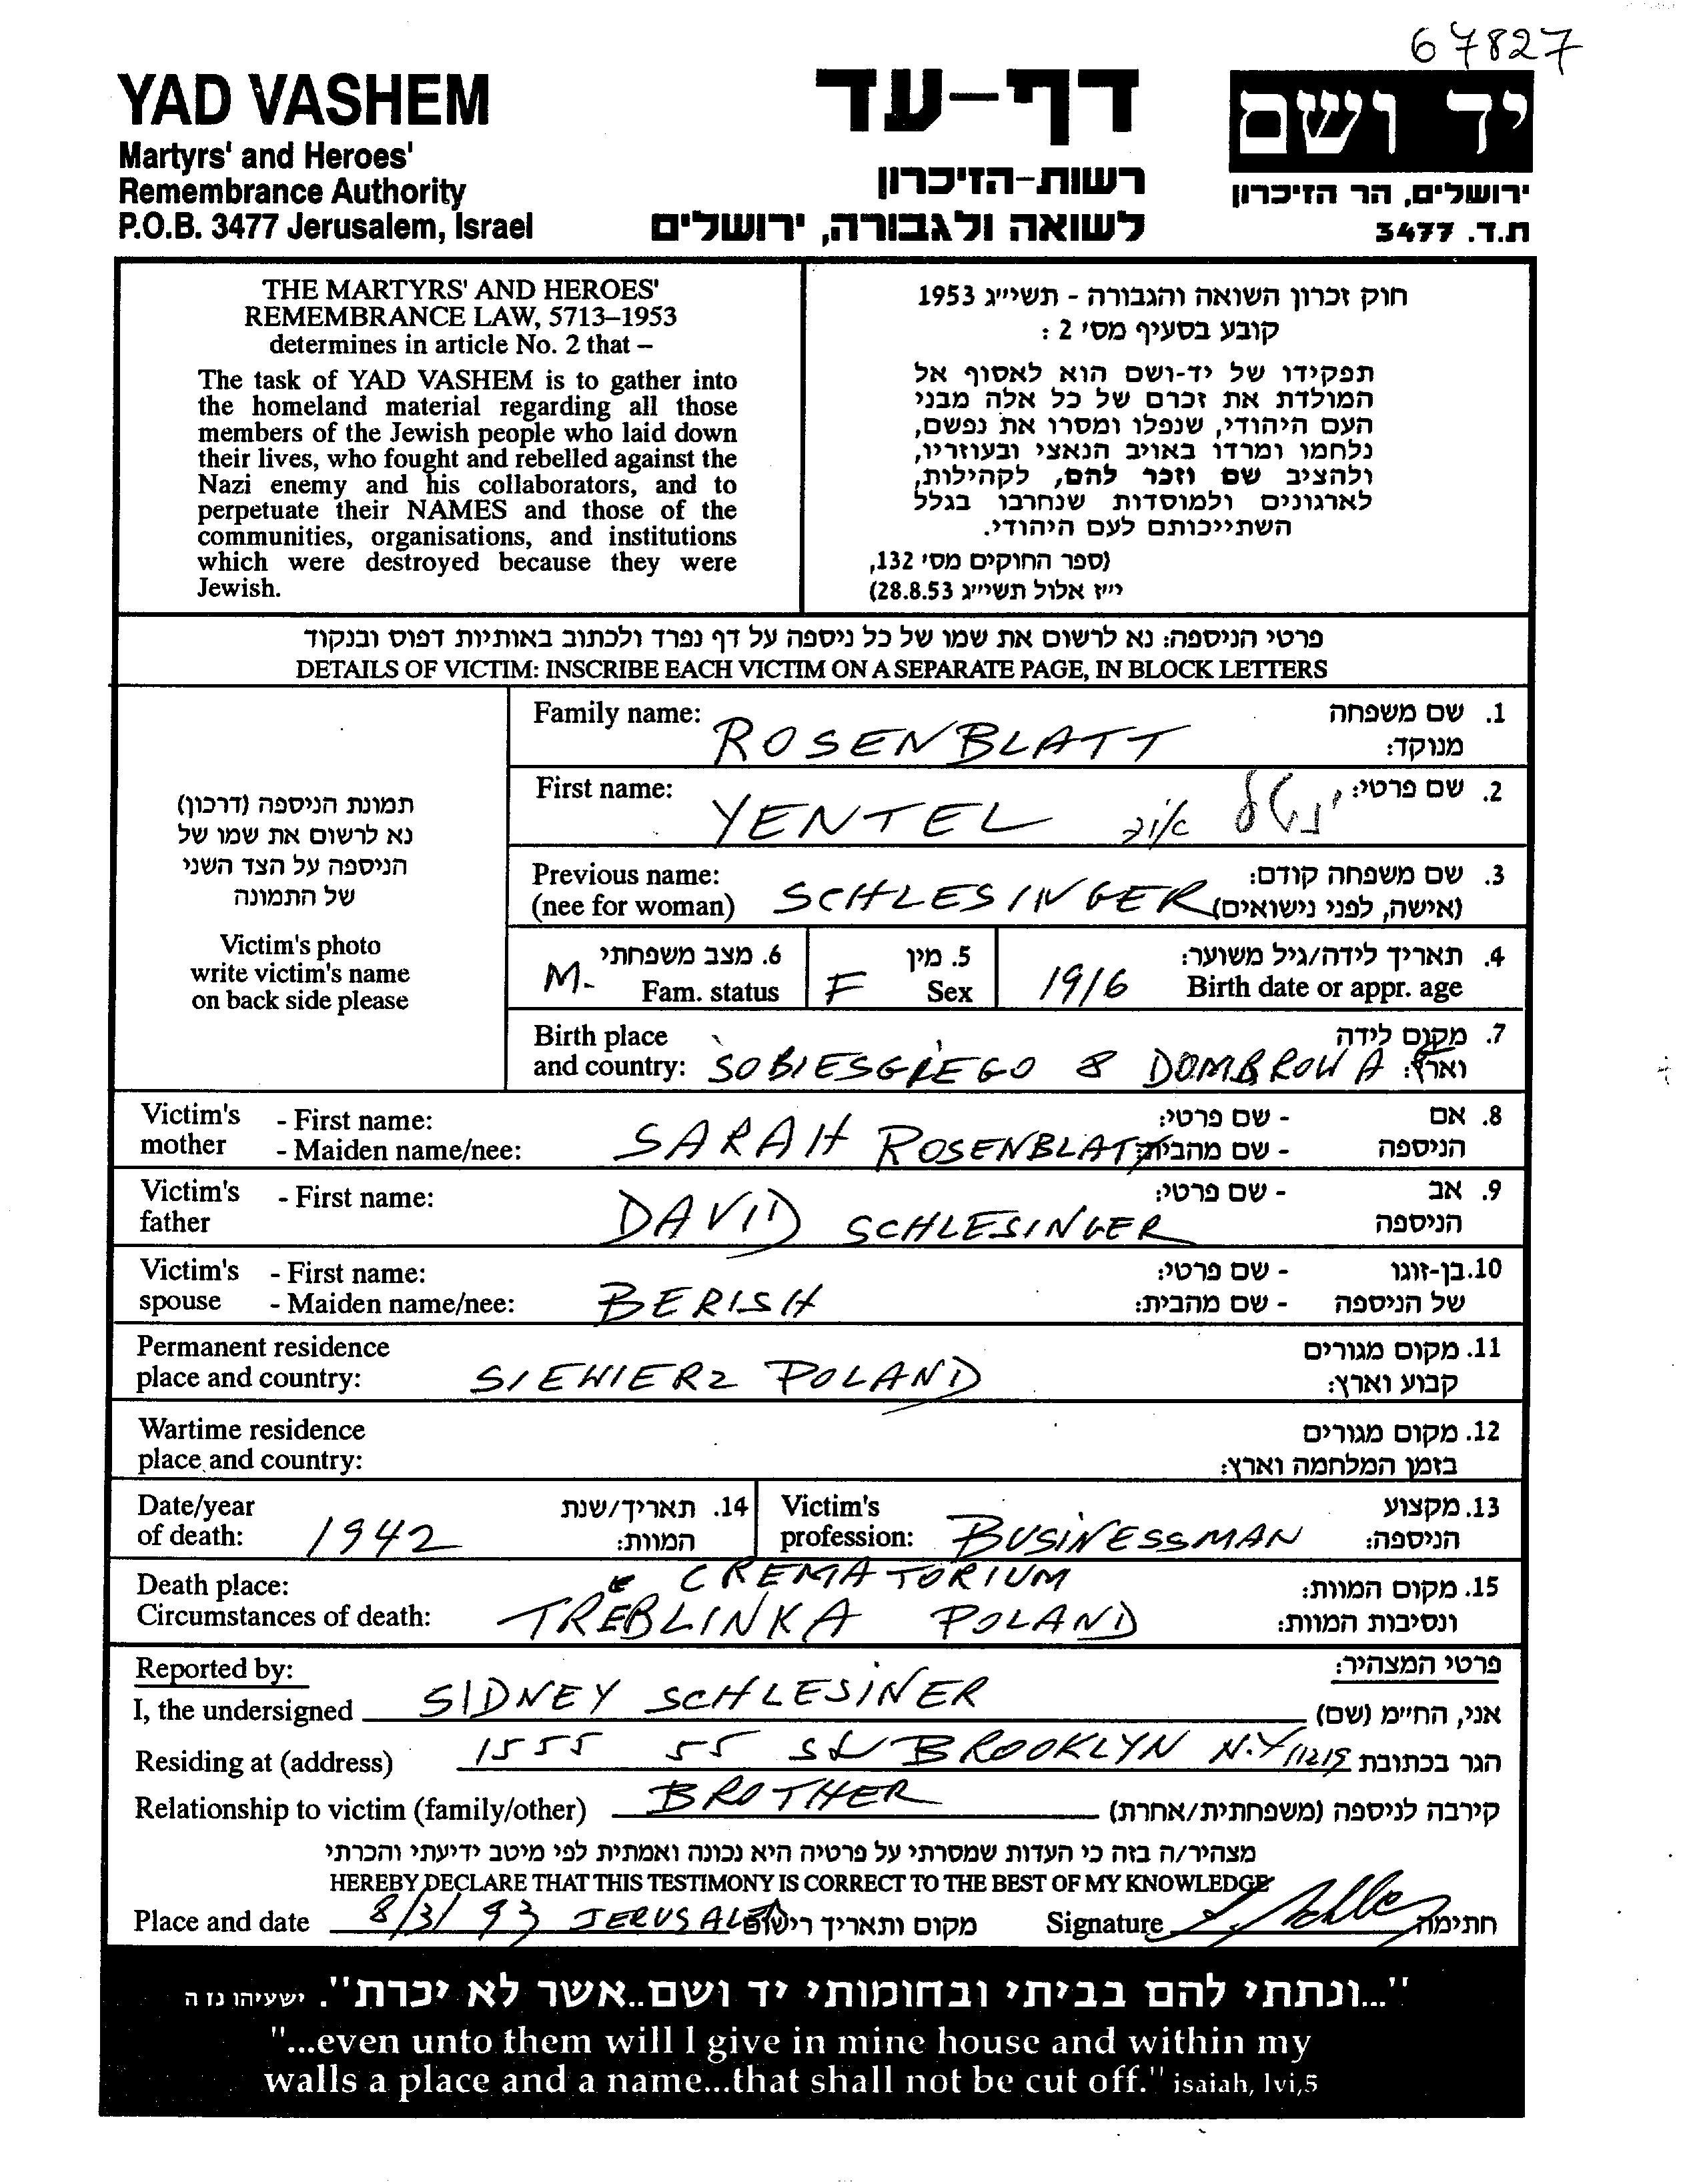 67827
YAD VASHEM
Martyrs' and Heroes'
Remembrance Authority
P.O.B. 3477 Jerusalem, Israel
דף-עד
רשות-הזיכרון
לשואה ולגבורה, ירושלים
יד ושם
ירושלים, הר הזיכרון
ת.ד. 3477
THE MARTYRS' AND HEROES'
REMEMBRANCE LAW, 5713–1953
determines in article No. 2 that –
The task of YAD VASHEM is to gather into
the homeland material regarding all those
members of the Jewish people who laid down
their lives, who fought and rebelled against the
Nazi enemy and his collaborators, and to
perpetuate their NAMES and those of the
communities, organisations, and institutions
which were destroyed because they were
Jewish.
חוק זכרון השואה והגבורה - תשי״ג 1953
קובע בסעיף מס׳ 2 :
תפקידו של יד-ושם הוא לאסוף אל
המולדת את זכרם של כל אלה מבני
העם היהודי, שנפלו ומסרו את נפשם,
נלחמו ומרדו באויב הנאצי ובעוזריו,
ולהציב שם וזכר להם, לקהילות,
לארגונים ולמוסדות שנחרבו בגלל
השתייכותם לעם היהודי.
(ספר החוקים מס׳ 132,
י״ז אלול תשי״ג 28.8.53)
פרטי הניספה: נא לרשום את שמו של כל ניספה על דף נפרד ולכתוב באותיות דפוס ובנקוד
DETAILS OF VICTIM: INSCRIBE EACH VICTIM ON A SEPARATE PAGE, IN BLOCK LETTERS
תמונת הניספה (דרכון)
נא לרשום את שמו של
הניספה על הצד השני
של התמונה
Victim's photo
write victim's name
on back side please
Family name: ROSENBLATT 1. שם משפחה
מנוקד:
First name: YENTEL 2. שם פרטי:
Previous name: 3. שם משפחה קודם:
(nee for woman) SCHLESINGER (אישה, לפני נישואים)
M. 6. מצב משפחתי
Fam. status
F 5. מין
Sex
1916 4. תאריך לידה/גיל משוער:
Birth date or appr. age
Birth place 7. מקום לידה
and country: SOBIESGREGO 8 DOMBROWA וארץ:
Victim's - First name: - שם פרטי: 8. אם
mother - Maiden name/nee: SARAH ROSENBLATT - שם מהבית: הניספה
Victim's - First name: - שם פרטי: 9. אב
father DAVID SCHLESINGER הניספה
Victim's - First name: - שם פרטי: 10. בן-זוגו
spouse - Maiden name/nee: BERISH - שם מהבית: של הניספה
Permanent residence 11. מקום מגורים
place and country: SIEWIERZ POLAND קבוע וארץ:
Wartime residence 12. מקום מגורים
place and country: בזמן המלחמה וארץ:
Date/year 14. תאריך/שנת
of death: 1942 המוות:
Victim's 13. מקצוע
profession: BUSINESSMAN הניספה:
Death place: CREMATORIUM 15. מקום המוות:
Circumstances of death: TREBLINKA POLAND ונסיבות המוות:
Reported by: פרטי המצהיר:
I, the undersigned SIDNEY SCHLESINER אני, החי״מ (שם)
Residing at (address) 1555 55 St BROOKLYN N.Y 11219 הגר בכתובת
Relationship to victim (family/other) BROTHER קירבה לניספה (משפחתית/אחרת)
מצהיר/ה בזה כי העדות שמסרתי על פרטיה היא נכונה ואמתית לפי מיטב ידיעתי והכרתי
HEREBY DECLARE THAT THIS TESTIMONY IS CORRECT TO THE BEST OF MY KNOWLEDGE
Place and date 8/3/93 JERUSALEM מקום ותאריך רישום Signature חתימה
"...ונתתי להם בביתי ובחומותי יד ושם..אשר לא יכרת". ישעיהו נו ה
"...even unto them will I give in mine house and within my
walls a place and a name...that shall not be cut off." isaiah, lvi,5